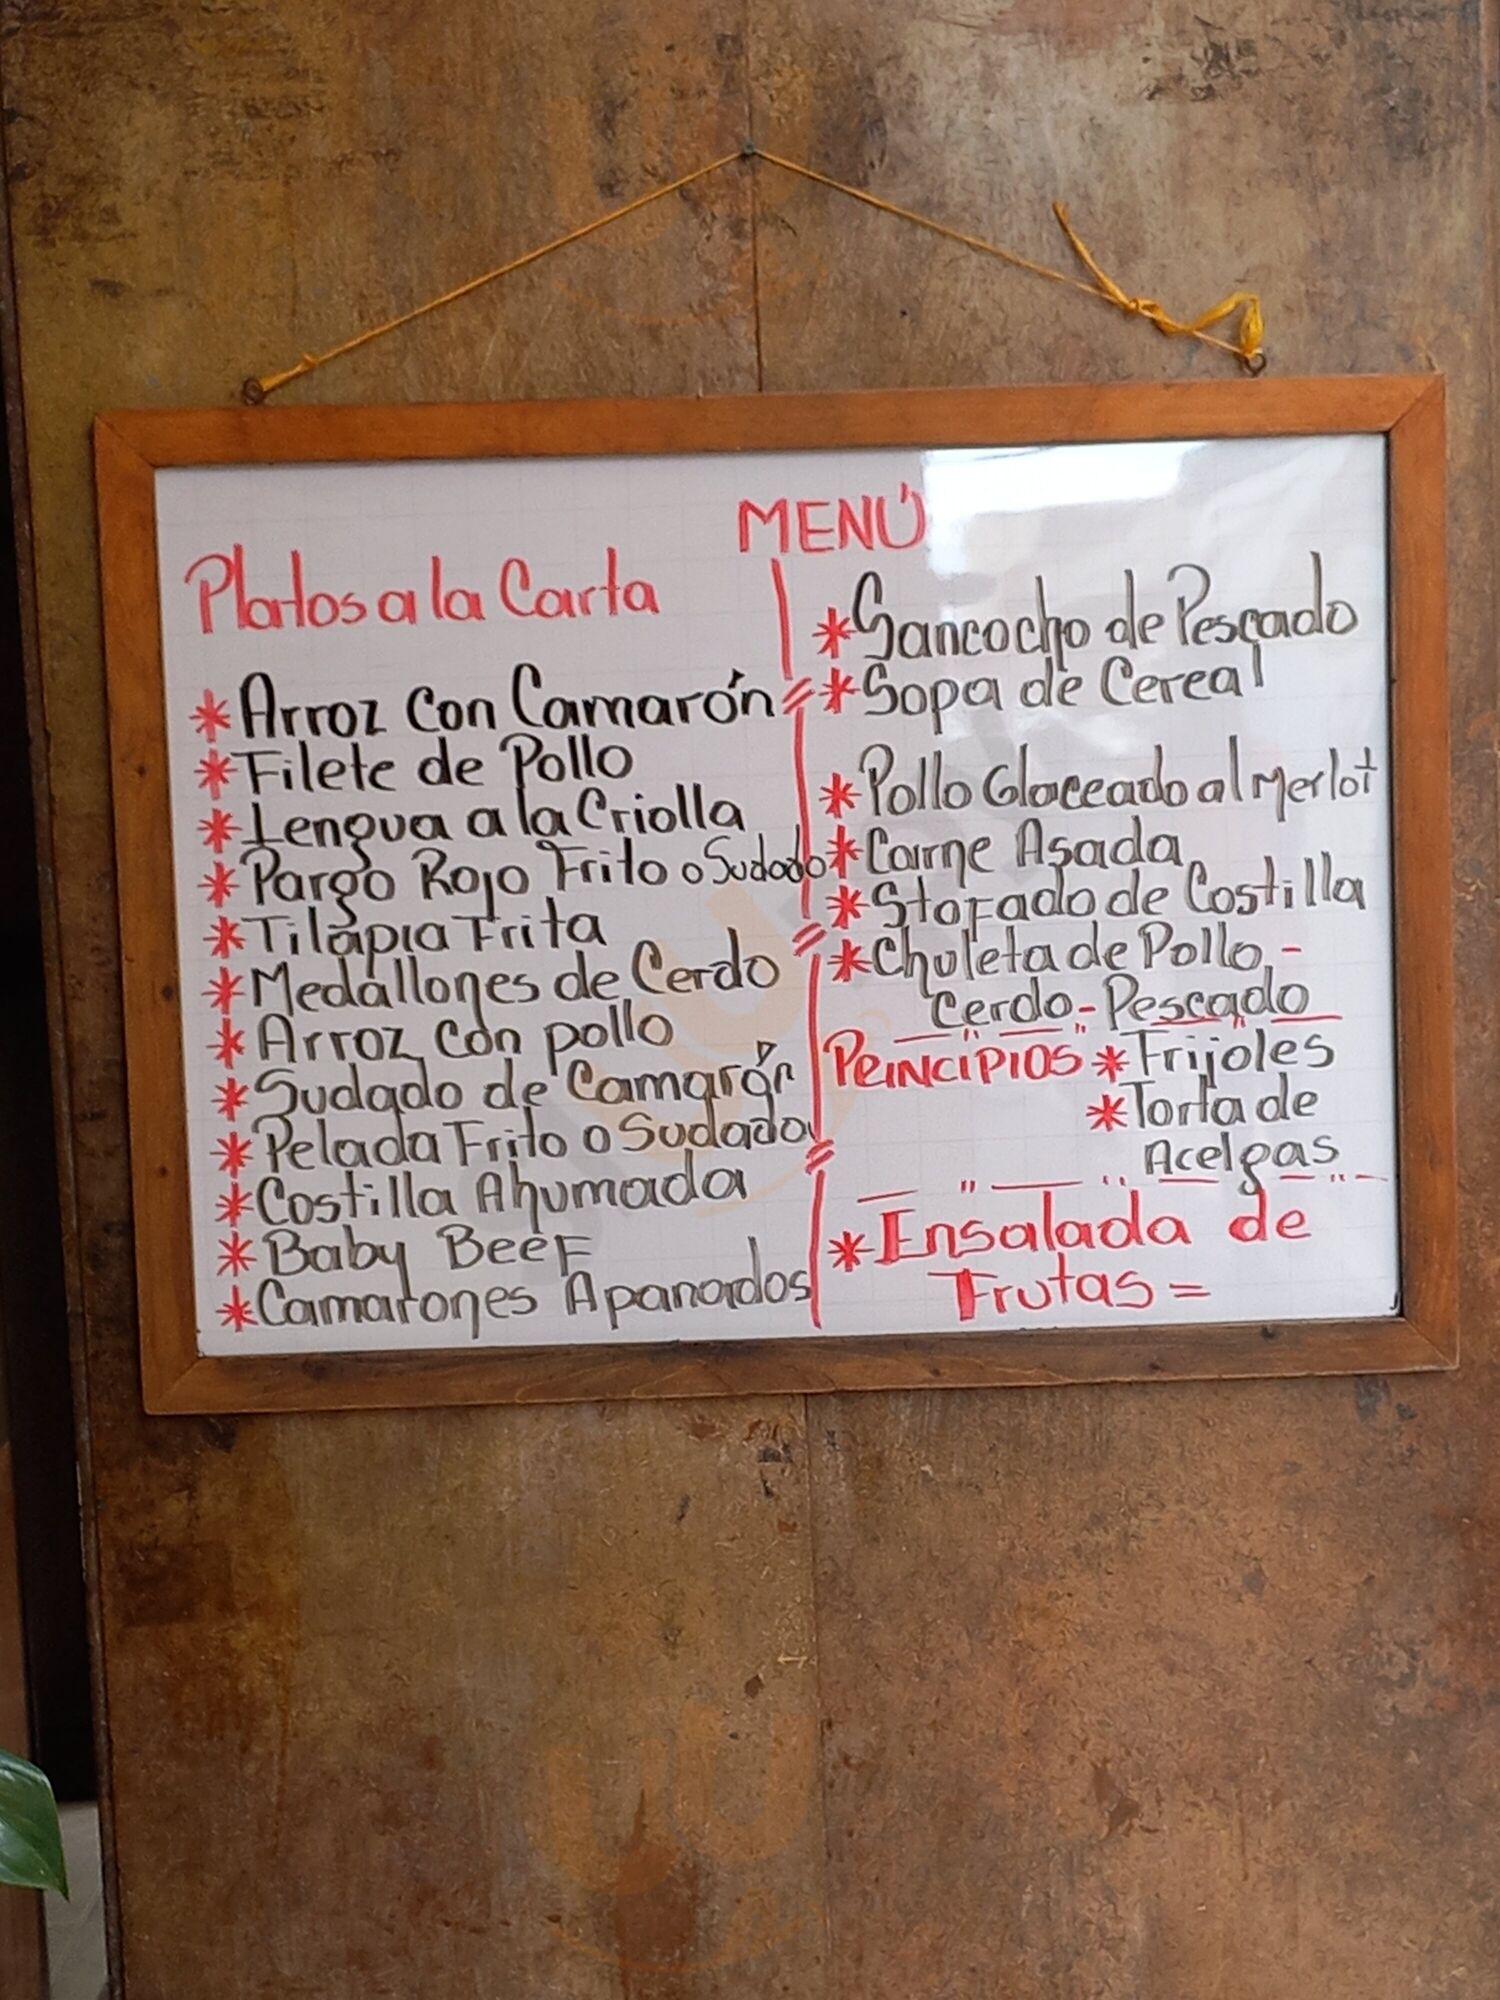 MENÚ
Platos a la Carta
* Arroz con Camarón
* Filete de Pollo
* Lengua a la Criolla
* Pargo Rojo Frito o Sudado
* Tilapia Frita
* Medallones de Cerdo
* Arroz con pollo
* Sudado de Camarón
* Pelada Frito o Sudado
* Costilla Ahumada
* Baby Beef
* Camarones Apanados
* Sancocho de Pescado
* Sopa de Cereal
* Pollo Glaceado al Merlot
* Carne Asada
* Stofado de Costilla
* Chuleta de Pollo -
Cerdo - Pescado
PRINCIPIOS * Frijoles
* Torta de
Acelgas
* Ensalada de
Frutas =